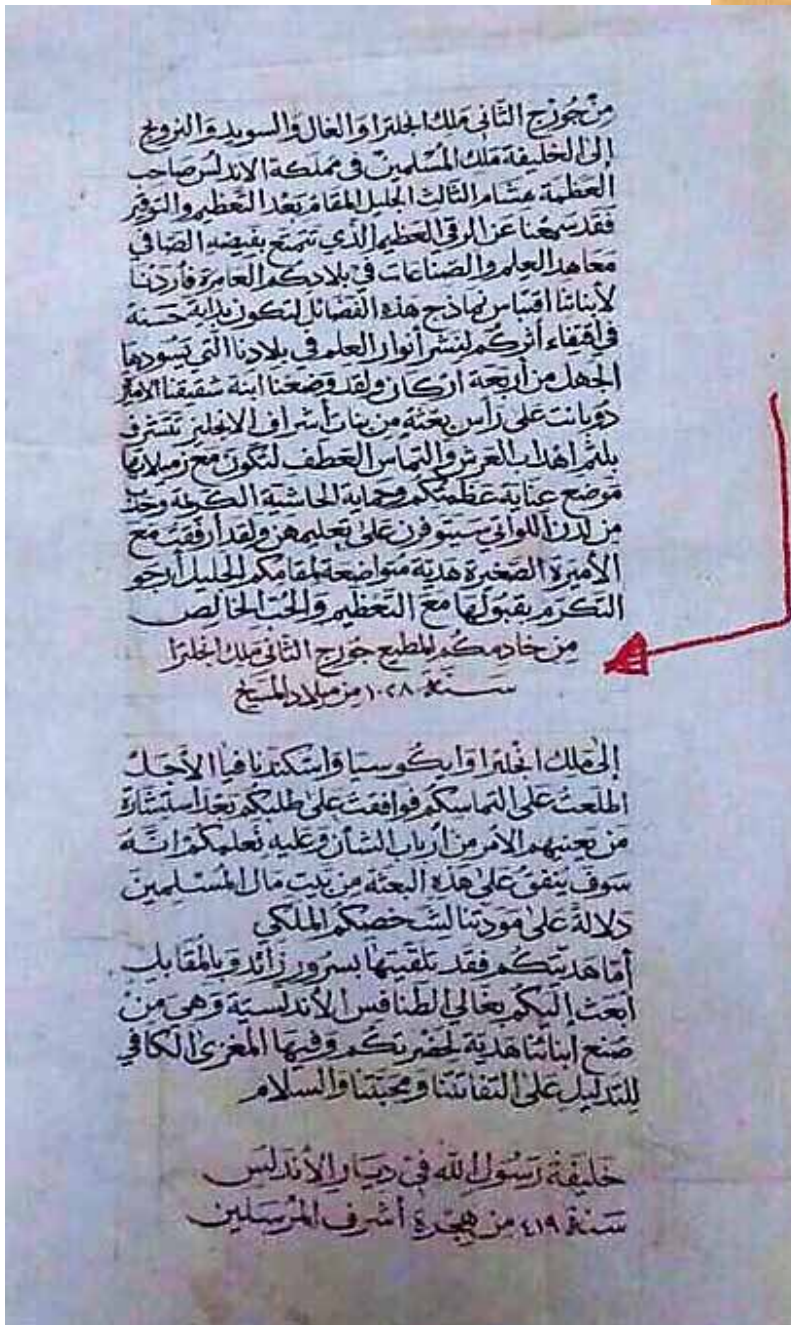 من جُورْج الثَّاني مَلك انجلترا وَالغال وَالسويد وَالنرويج
إلى الخليفة مَلك المُسْلمين في مَملكة الاندلس صَاحب
العَظمة هشام الثالث الجَليل المقام بَعْد التَّعظيم والتوقير
فقد سَمِعْنا عَن الرقى العَظيم الَّذي تتمتع بفيضه الصَافي
مَعاهد العلم والصّناعَات في بلادكم العَامرة فأردنا
لأبنائنا اقتباس نماذج هذه الفضائل لتكون بداية حَسَنة
في اقتفاء أثركم لنشر أنوار العلم في بلادنا التي يَسُودها
الجهل من أربعة اركان ولقد وضعنا ابنة شقيقنا الامير
دوبانت على رأس بعثة من بنات أشراف الانجليز تتشرف
بلثم اهداب العرش والتماس العطف لتكون مع زميلاتها
موضع عناية عظمتكم وحماية الحاشية الكريمة وحدب
من لدن اللواتي سيتوفرن على تعليمهن ولقد أرفقت مع
الأميرة الصغيرة هدية متواضعة لمقامكم الجليل أرجو
التكرم بقبولها مع التعظيم والحب الخالص
من خادمكم المطيع جورج الثاني ملك انجلترا
سنة ١٠٢٨ من ميلاد المسيح
إلى ملك انجلترا وايكوسيا واسكندنافيا الأجل
اطلعت على التماسكم فوافقت على طلبكم بعد استشارة
من يعنيهم الأمر من أرباب الشأن وعليه نعلمكم انه
سوف ينفق على هذه البعثة من بيت مال المسلمين
دلالة على مودتنا لشخصكم الملكي
أما هديتكم فقد تلقيتها بسرور زائد وبالمقابل
أبعث إليكم بغالي الطنافس الأندلسية وهي من
صنع أبنائنا هدية لحضرتكم وفيها المغزى الكافي
للتدليل على التفاتتنا ومحبتنا والسلام
خليفة رَسُول الله في ديار الأندلس
سنة ٤١٩ من هجرة أشرف المرسلين